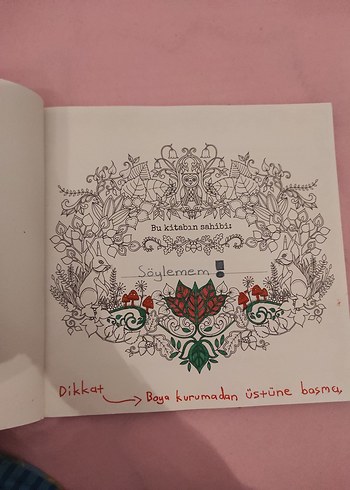 Bu kitabın sahibi:
Söylemem !
Dikkat → Boya kurumadan üstüne basma.